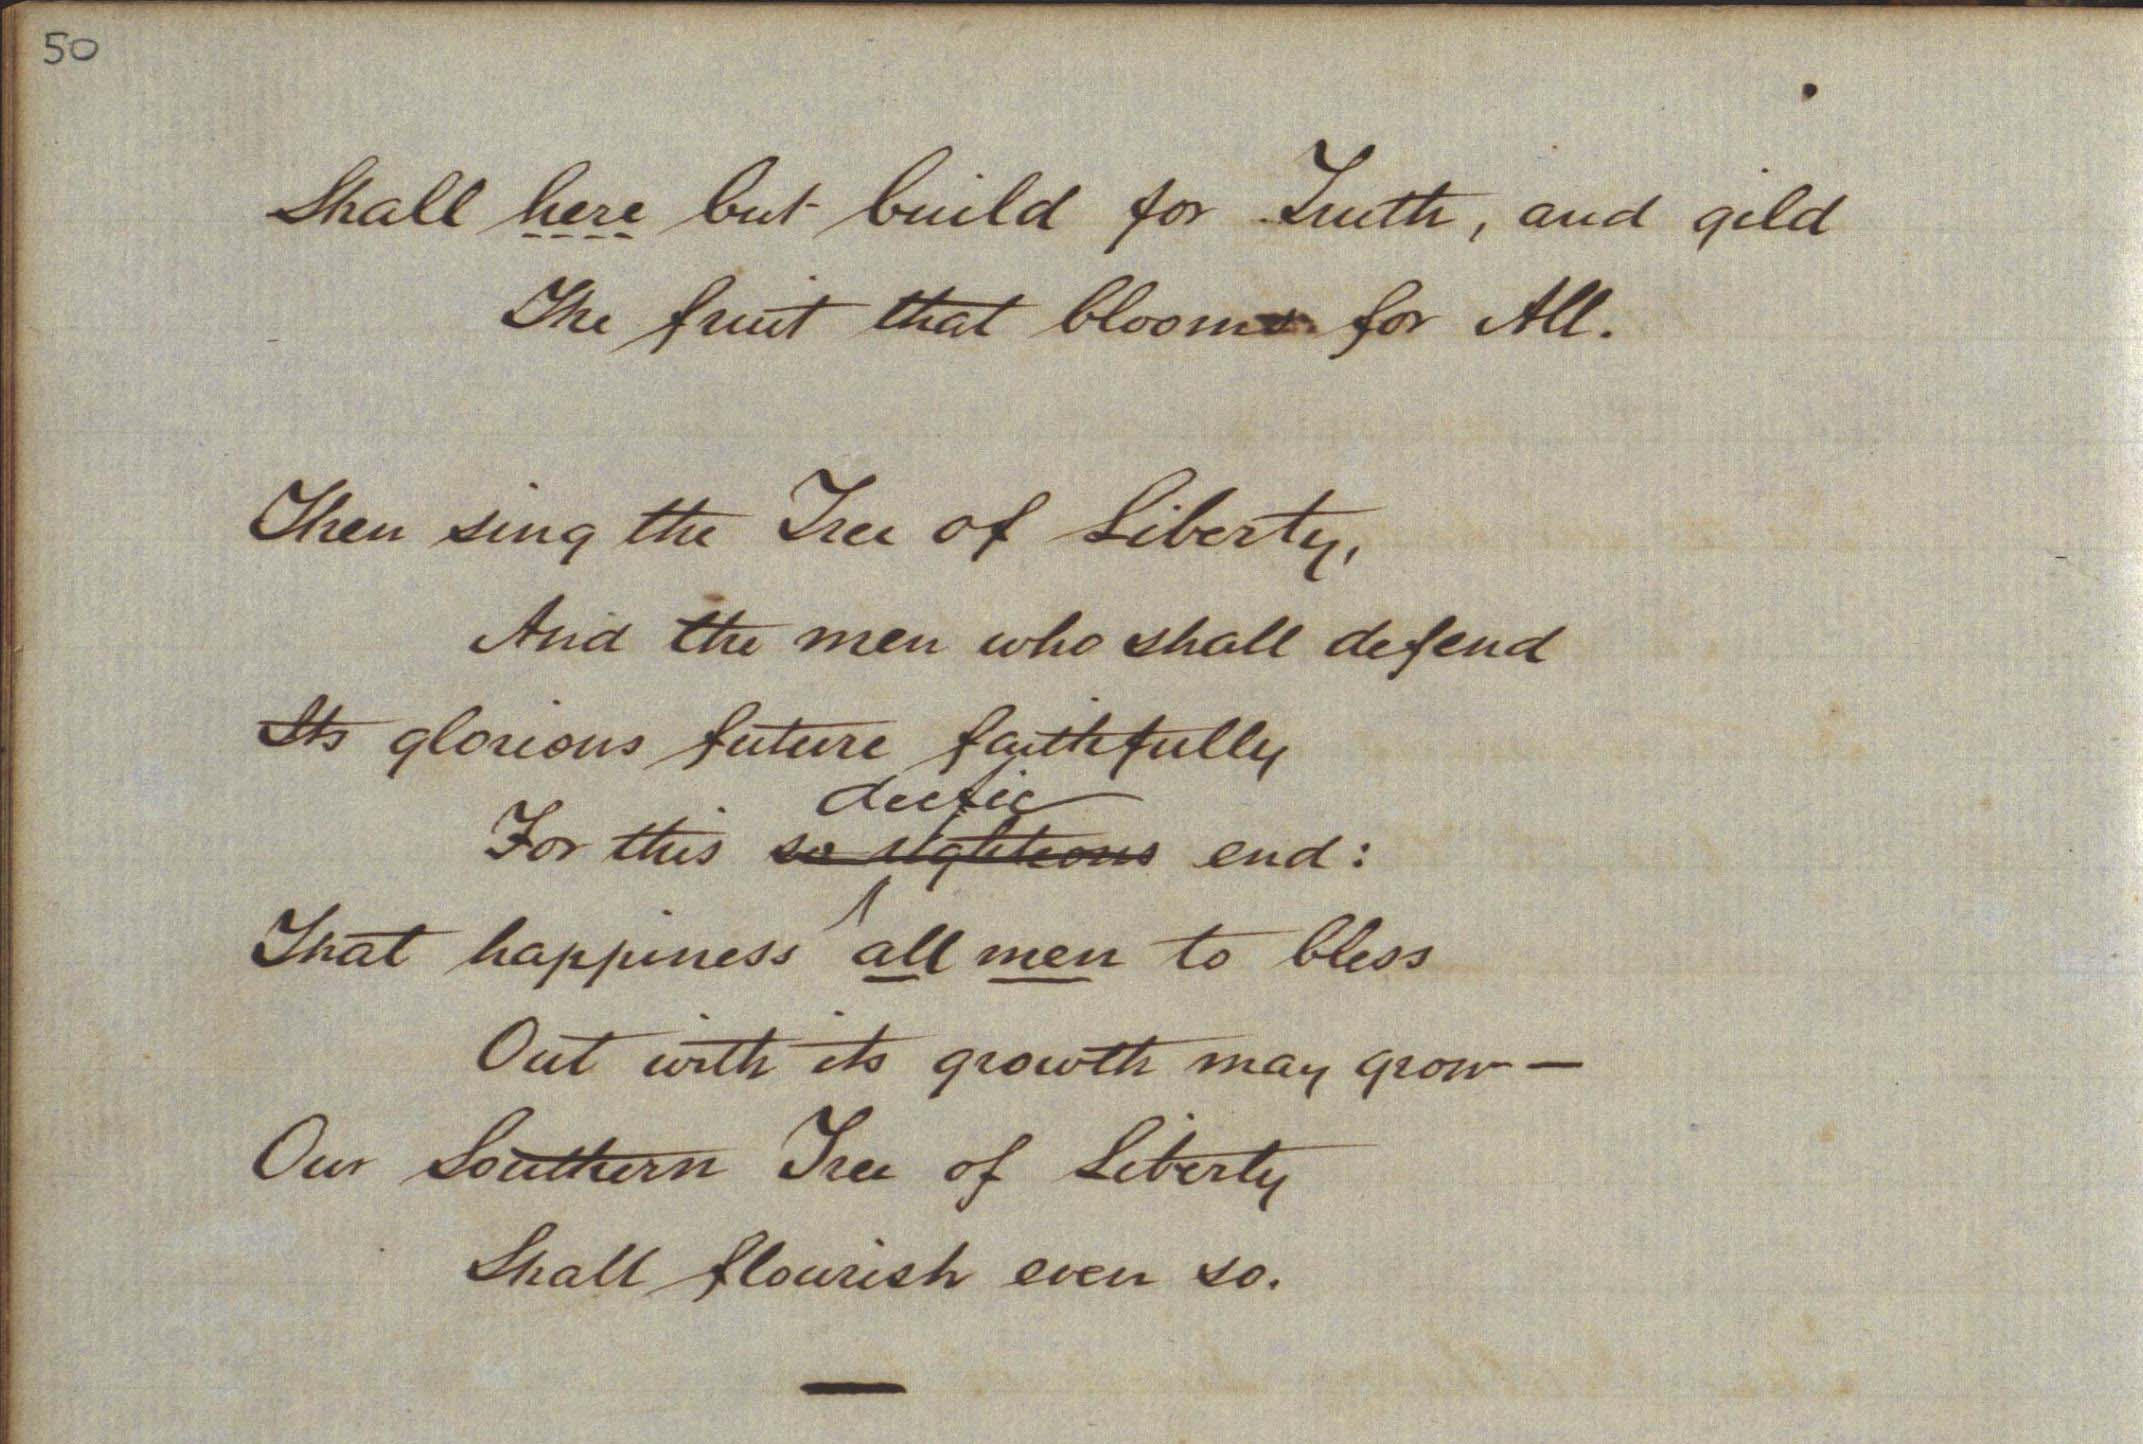 50
Shall here but build for Truth, and gild
The fruit that blooms for All.
Then sing the Tree of Liberty,
And the men who shall defend
Its glorious future faithfully
deific
For this so righteous end:
That happiness all men to bless
Out with its growth may grow —
Our Southern Tree of Liberty
Shall flourish even so.